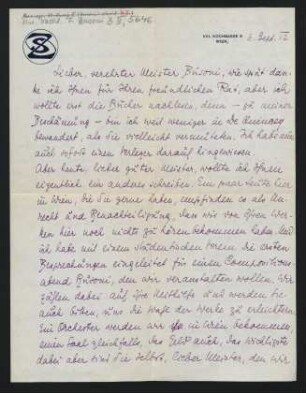 Mus. Nachl. F. Busoni B II, 5646
SZ
VIII. KOCHGASSE 8
WIEN,
Lieber, verehrter Meister Busoni, wie spät dan-
ke ich Ihnen für Ihren freundlichen Rat, aber ich
wollte erst die Bücher nachlesen, denn – zu meiner
Beschämung – bin ich weit weniger in
bewandert, als Sie vielleicht vermuten. Ich habe nun
auch sofort einen Verleger darauf hingewiesen.
Aber heute, lieber guter Meister, wollte ich Ihnen
eigentlich ein anderes schreiben. Ein paar Leute hier
in Wien, die Sie gerne haben, empfinden es als Un-
recht und Benachteiligung, dass wir von Ihren Wer-
ken hier noch nichts zu hören bekommen haben. Und
ich habe mit einem Studentischen Verein die ersten
Besprechungen eingeleitet für einen Compositions-
abend Busoni, den wir veranstalten wollen. Wir
zählen dabei auf Ihre Mithilfe und werden Sie
auch bitten, uns die Wahl der Werke zu erleichtern.
Ein Orchester werden wir ja in Wien bekommen,
einen Saal gleichfalls, das Geld auch. Das wichtigste
dabei aber sind Sie selbst, lieber Meister, den wir